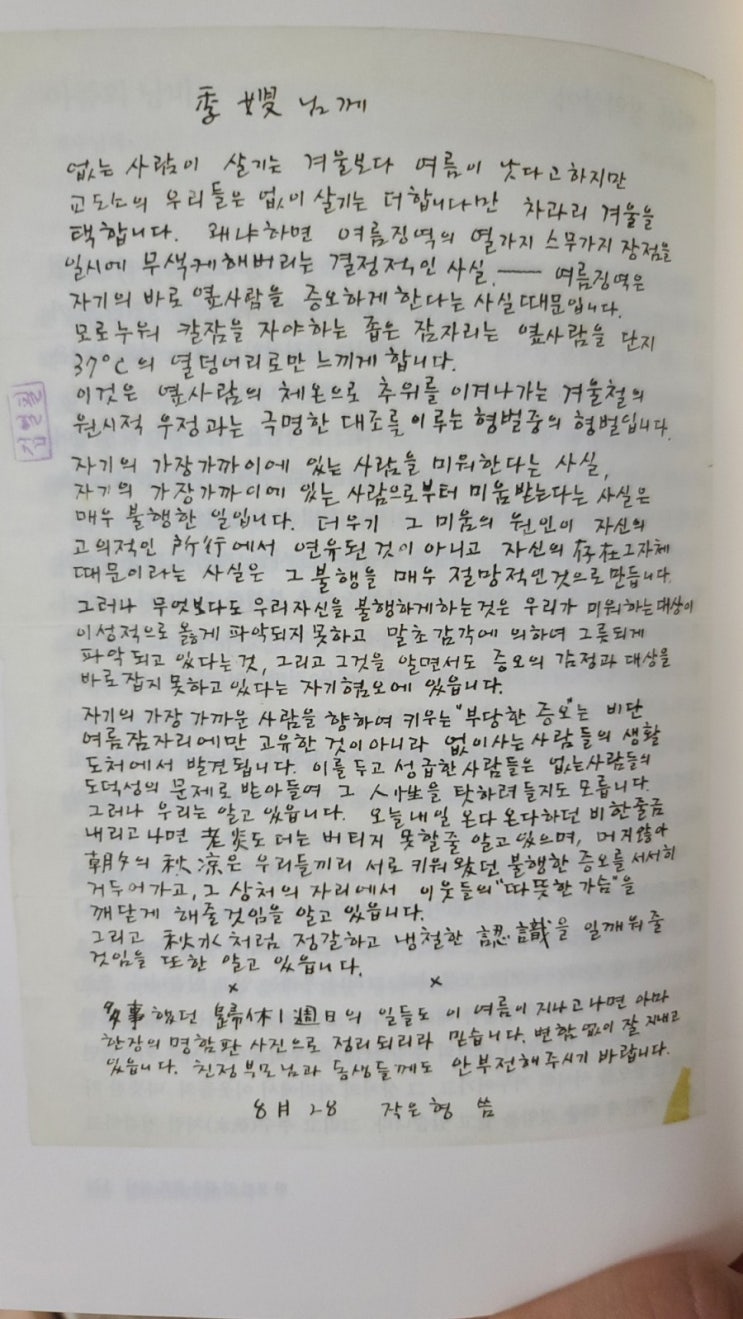 季嫂님께
없는 사람이 살기는 겨울보다 여름이 낫다고하지만
교도소의 우리들은 없이 살기는 더합니다만 차라리 겨울을
택합니다. 왜냐하면 여름징역의 열가지 스무가지 장점을
일시에 무색케해버리는 결정적인 사실. —— 여름징역은
자기의 바로 옆사람을 증오하게 한다는 사실 때문입니다.
모로누워 칼잠을 자야하는 좁은 잠자리는 옆사람을 단지
37°C의 열덩어리로만 느끼게 합니다.
이것은 옆사람의 체온으로 추위를 이겨나가는 겨울철의
원시적 우정과는 극명한 대조를 이루는 형벌중의 형벌입니다.
자기의 가장가까이에 있는 사람을 미워한다는 사실,
자기의 가장가까이에 있는 사람으로부터 미움받는다는 사실은
매우 불행한 일입니다. 더우기 그 미움의 원인이 자신의
고의적인 所行에서 연유된 것이 아니고 자신의 存在 그자체
때문이라는 사실은 그 불행을 매우 절망적인것으로 만듭니다.
그러나 무엇보다도 우리자신을 불행하게하는것은 우리가 미워하는대상이
이성적으로 옳게 파악되지 못하고 말초감각에 의하여 그릇되게
파악되고 있다는것, 그리고 그것을 알면서도 증오의 감정과 대상을
바로잡지 못하고있다는 자기혐오에 있읍니다.
자기의 가장 가까운 사람을 향하여 키우는 "부당한 증오"는 비단
여름잠자리에만 고유한 것이 아니라 없이사는 사람들의 생활
도처에서 발견됩니다. 이를 두고 성급한 사람들은 없는사람들의
도덕성의 문제로 받아들여 그 人性을 탓하려들지도 모릅니다.
그러나 우리는 알고 있읍니다. 오늘내일 온다 온다하던 비 한줄금
내리고나면 老炎도 더는 버티지 못할줄 알고있으며, 머지않아
朝夕의 秋凉은 우리들끼리 서로 키워왔던 불행한 증오를 서서히
거두어가고, 그 상처의 자리에서 이웃들의 "따뜻한 가슴"을
깨닫게 해줄것임을 알고 있읍니다.
그리고 秋水처럼 정갈하고 냉철한 認識을 일깨워줄
것임을 또한 알고 있읍니다.
× ×
多事했던 歸休1週日의 일들도 이 여름이 지나고나면 아마
한장의 명함판 사진으로 정리되리라 믿습니다. 변함없이 잘 지내고
있읍니다. 친정부모님과 동생들께도 안부전해주시기 바랍니다.
8月 28 작은형 씀